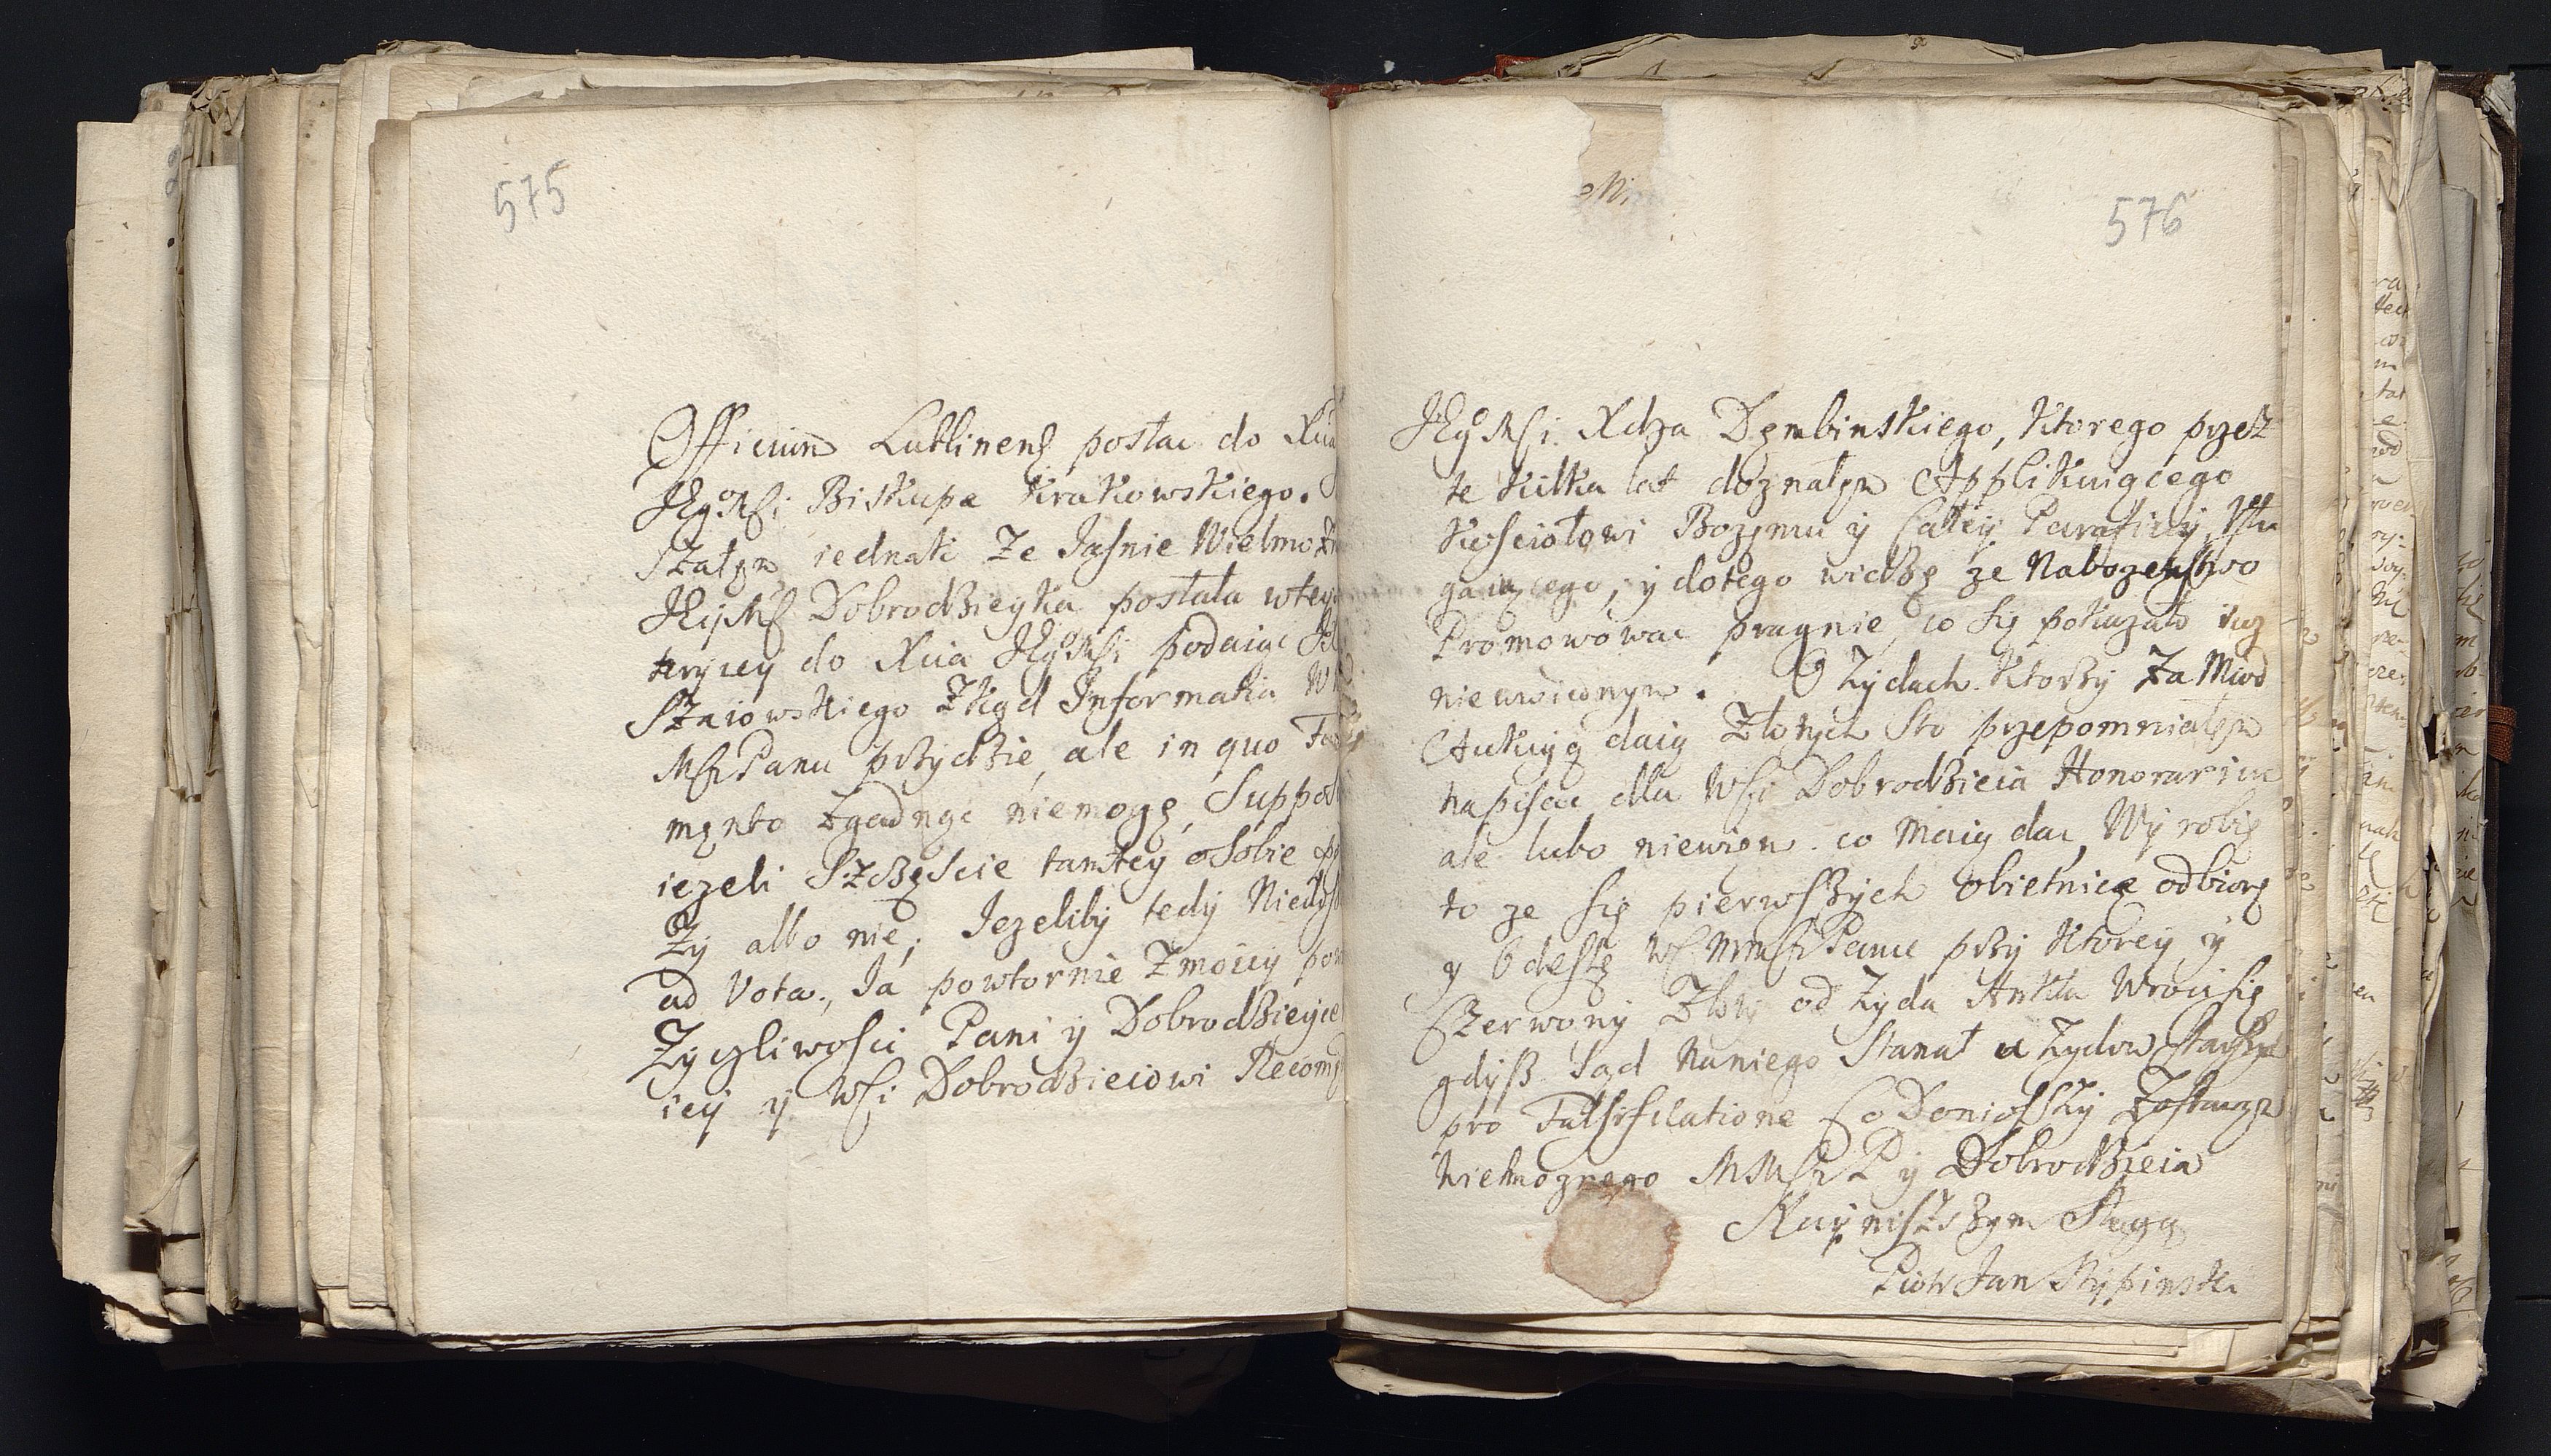 575
Officium Lublinens posłac do Xcia
JEgoMsci Biskupa Krakowskiego.
szałem iednak Ze Jasnie Wielmoz
JEijMsc Dobrodzieyka posłała wtey
teryiey do Xcia JEgoMsci podaiąc
Szaiowskiego Zkąd Informatia
MsciPanu przydzie, ale in quo
mento Zgadnąc niemogę,
iezeli Szczęscie tamtey osobie
Zy albo nie, Jezeliby tedy
ad Vota, Ja powtornie Zmoiey
Zyczliwosci Pani y Dobrodzieyce
iey y WSci Dobrodzieiowi
576
JEgoMsci Xdza Dembinskiego, Ktorego przez
te kilka lat doznałem Applikuiącego
Kosciołowi Bozemu y Całey Parafiiey,
gaiącego, y dotego widzę ze Nabozenstwo
Promowowac pragnie, co się pokazało iuz
nieraz. O Zydach Ktorzy Za Miod
daią Złotych Sto przepomniałem
napisac dla WSci Dobrodzieia Honorarium
ale lubo niewiem co Maią dac, Wyrobię
to ze się pierwszych obietnica odbiorę
y Odeslę przy Ktorey y
Czerwony Złoty od Zyda Wroci się
gdysz Sąd Naniego Stanał a Zydow
pro Co Doniosszy Zostaięn
Wielmoznego MMSci P y Dobrodzieia
Nayniszszym Sługą
Piotr Jan Rypinski